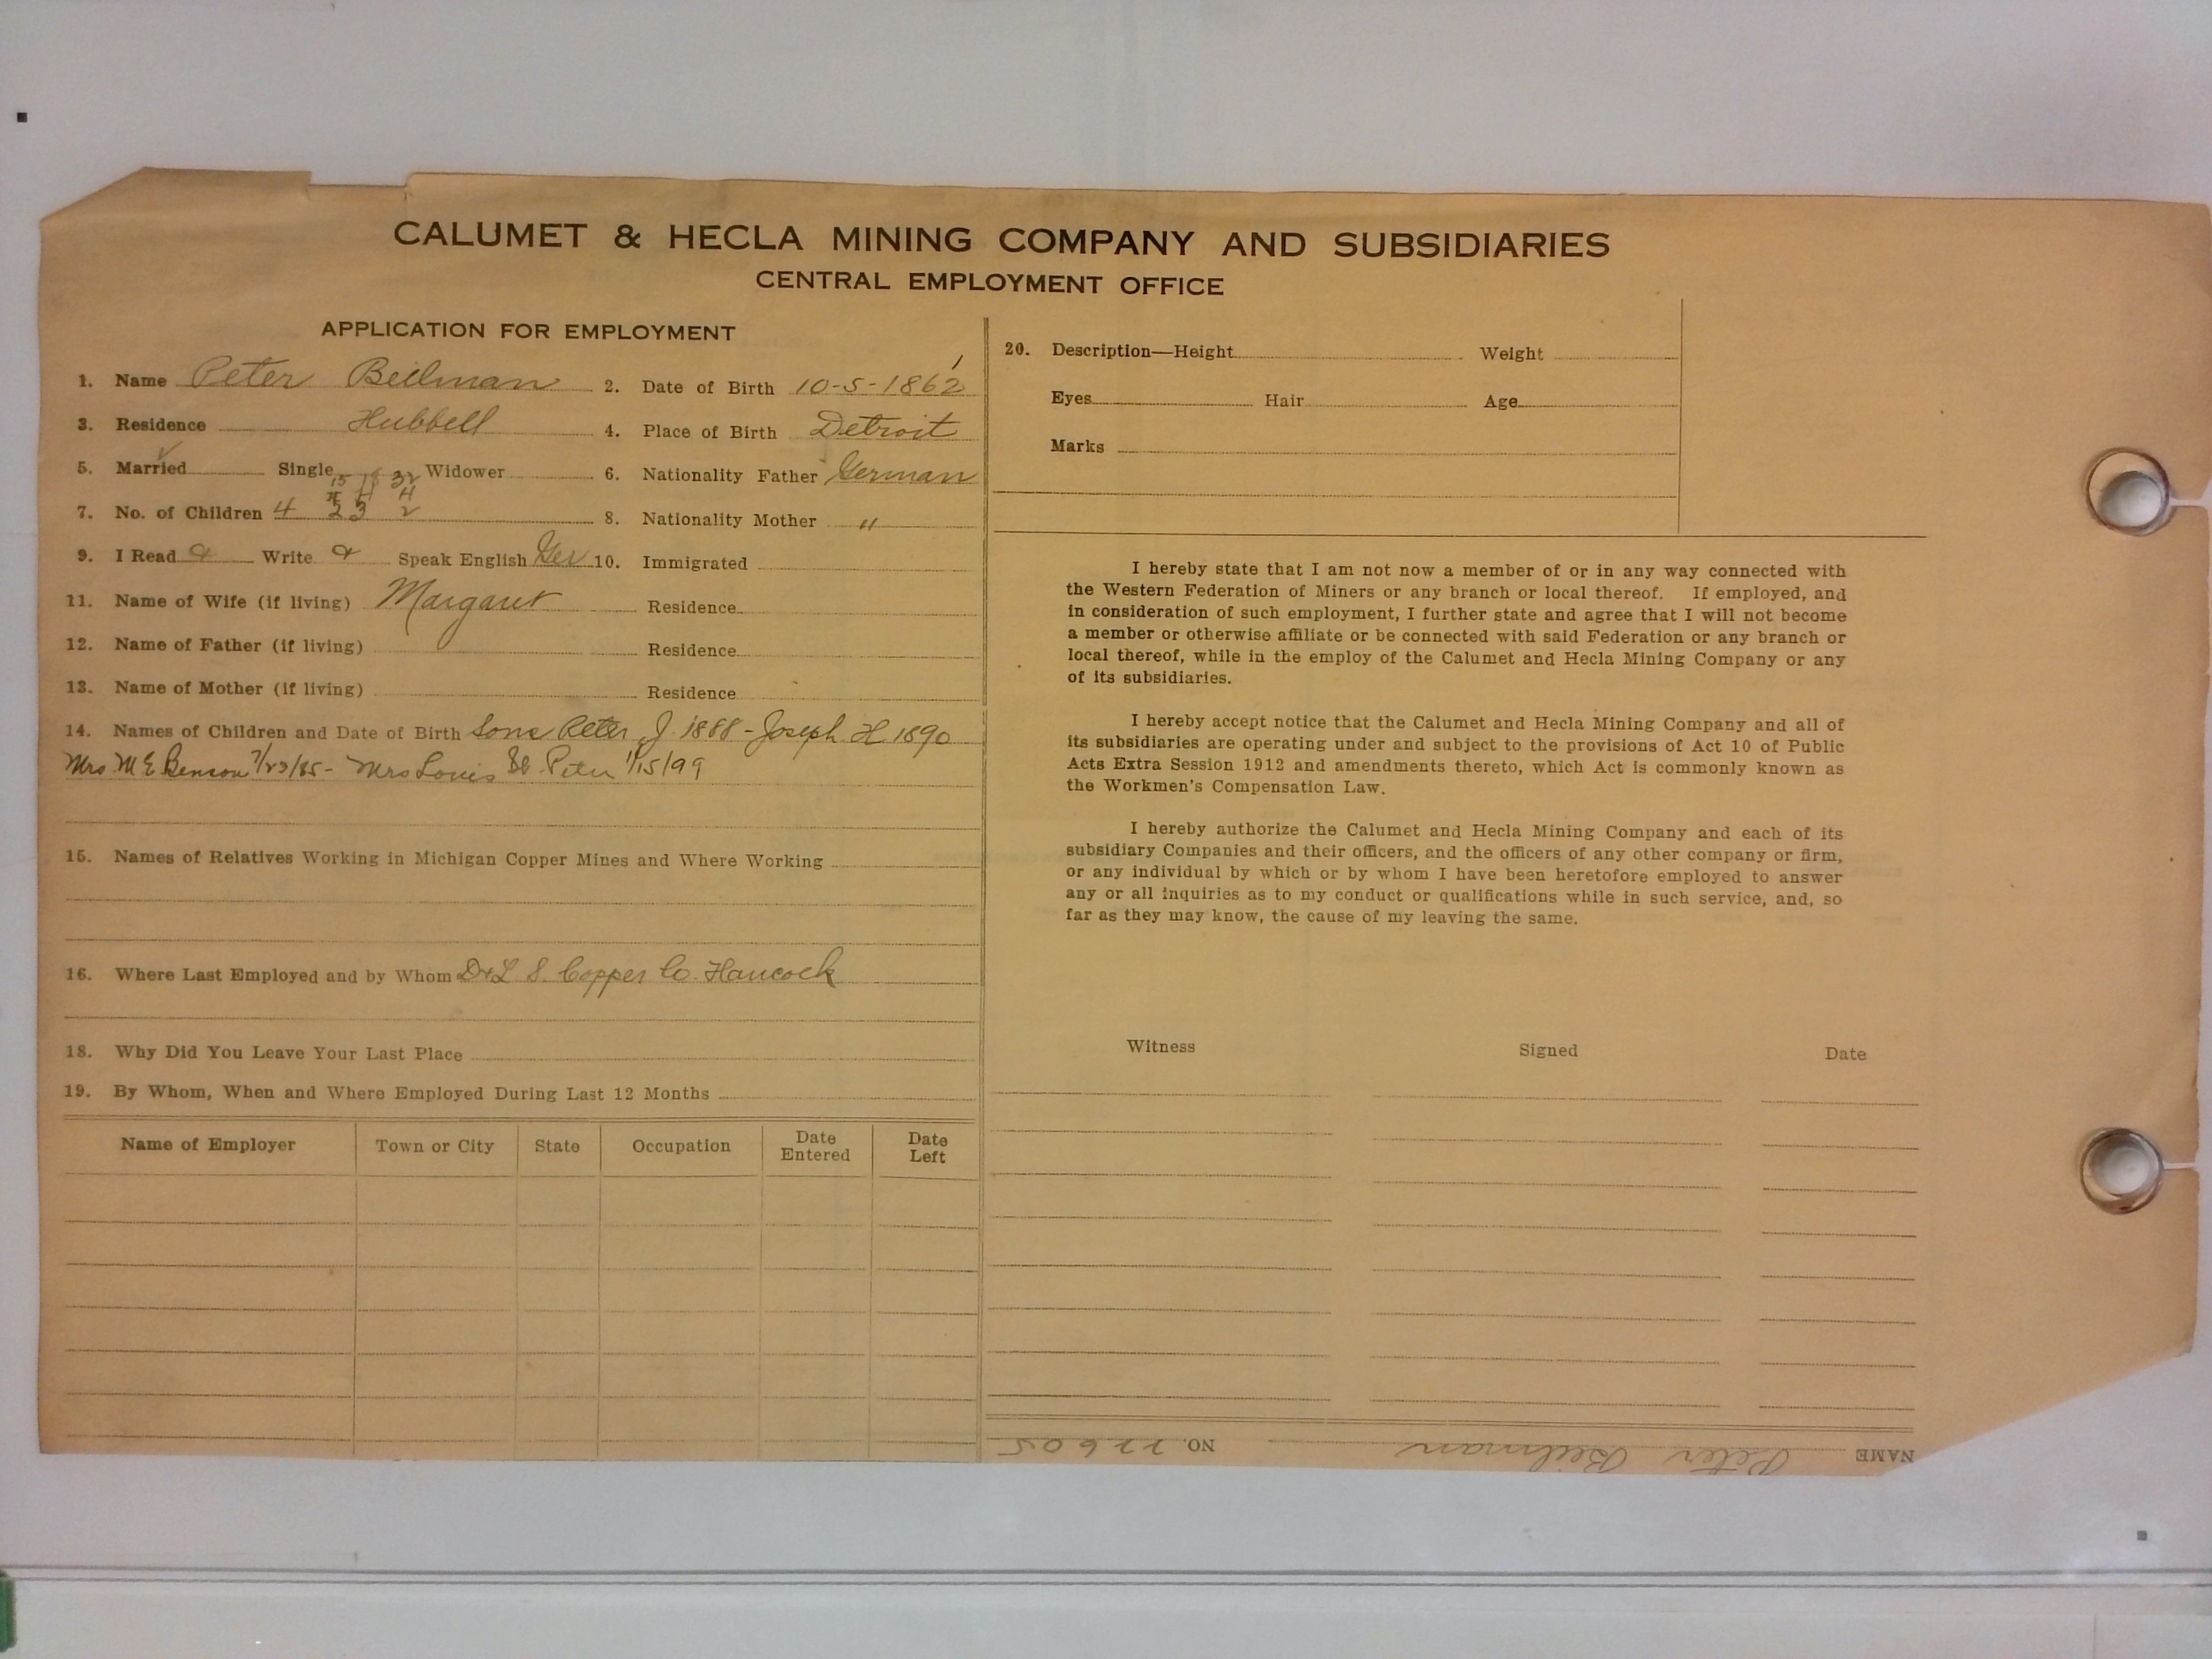 CALUMET & HECLA MINING COMPANY AND SUBSIDIARIES
CENTRAL EMPLOYMENT OFFICE
APPLICATION FOR EMPLOYMENT
1. Name Peter Beilman 2. Date of Birth 10-5-1862 1
3. Residence Hubbell 4. Place of Birth Detroit
5. Married ✓ Single Widower 6. Nationality Father German
15 18 32
7. No. of Children 4 8. Nationality Mother "
9. I Read & Write & Speak English Ger 10. Immigrated
11. Name of Wife (if living) Margaret Residence
12. Name of Father (if living) Residence
13. Name of Mother (if living) Residence
14. Names of Children and Date of Birth Sons Peter J. 1888 - Joseph H 1890
Mrs M E Benson 7/23/85 - Mrs Louis St. Peter 1/15/99
15. Names of Relatives Working in Michigan Copper Mines and Where Working
16. Where Last Employed and by Whom D & L S. Copper Co. Hancock
18. Why Did You Leave Your Last Place
19. By Whom, When and Where Employed During Last 12 Months
Name of Employer Town or City State Occupation Date Entered Date Left
20. Description—Height Weight
Eyes Hair Age
Marks
I hereby state that I am not now a member of or in any way connected with
the Western Federation of Miners or any branch or local thereof. If employed, and
in consideration of such employment, I further state and agree that I will not become
a member or otherwise affiliate or be connected with said Federation or any branch or
local thereof, while in the employ of the Calumet and Hecla Mining Company or any
of its subsidiaries.
I hereby accept notice that the Calumet and Hecla Mining Company and all of
its subsidiaries are operating under and subject to the provisions of Act 10 of Public
Acts Extra Session 1912 and amendments thereto, which Act is commonly known as
the Workmen's Compensation Law.
I hereby authorize the Calumet and Hecla Mining Company and each of its
subsidiary Companies and their officers, and the officers of any other company or firm,
or any individual by which or by whom I have been heretofore employed to answer
any or all inquiries as to my conduct or qualifications while in such service, and, so
far as they may know, the cause of my leaving the same.
Witness Signed Date
NAME Peter Beilman NO. 22605